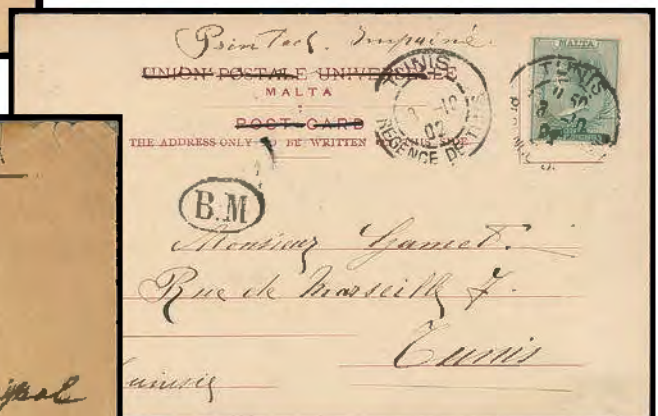 Printed. Imprimé.
UNION POSTALE UNIVERSELLE
MALTA
POST CARD
THE ADDRESS ONLY TO BE WRITTEN
MALTA
TUNIS
02
REGENCE DE TUNIS
TUNIS
B.M
Monsieur Gamet.
Rue de Marseille 7.
Tunis
Tunisie